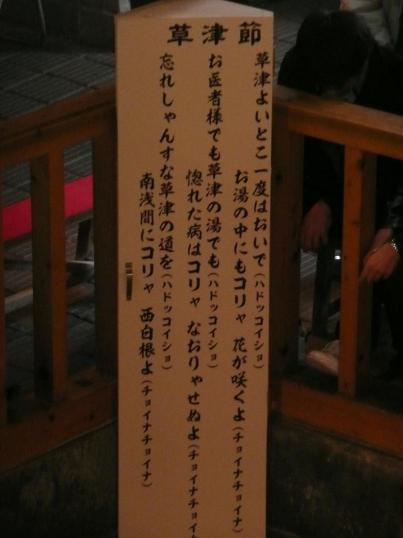 草津節
草津よいとこ一度はおいで（ハドッコイショ）
お湯の中にもコリャ 花が咲くよ（チョイナチョイナ）
お医者様でも草津の湯でも（ハドッコイショ）
惚れた病はコリャ なおりゃせぬよ（チョイナチョイナ
忘れしゃんすな草津の道を（ハドッコイショ）
南浅間にコリャ 西白根よ（チョイナチョイナ）